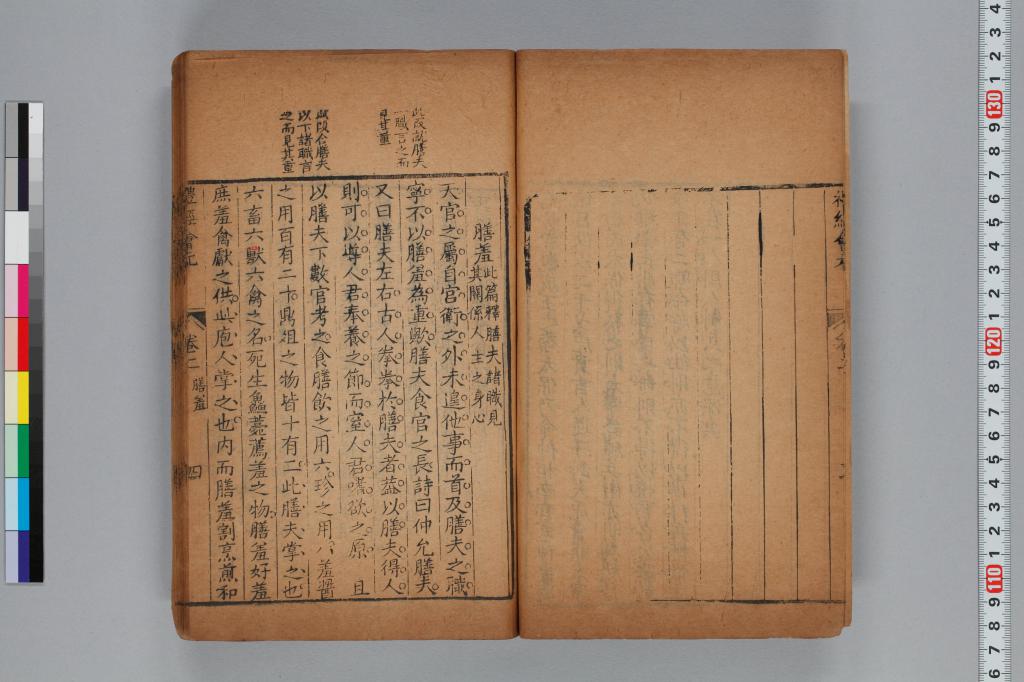 此段就膳夫
一職言之而
見其重
此段合膳夫
以下諸職言
之而見其重
膳羞
此篇釋膳夫諸職見
其關係人主之身心
天官之屬自宮衛之外未遑他事而首及膳夫之職
寧不以膳羞為重歟膳夫食官之長詩曰仲允膳夫
又曰膳夫左右古人拳拳於膳夫者蓋以膳夫得人
則可以導人君奉養之節而窒人君嗜欲之原且
以膳夫下數官考之食膳飲之用六珍之用八羞醬
之用百有二十鼎俎之物皆十有二此膳夫掌之也
六畜六獸六禽之名死生鱻薧薦羞之物膳羞好羞
庶羞禽獻之供此庖人掌之也內而膳羞割烹煎和
禮經會元
卷二
膳羞
四